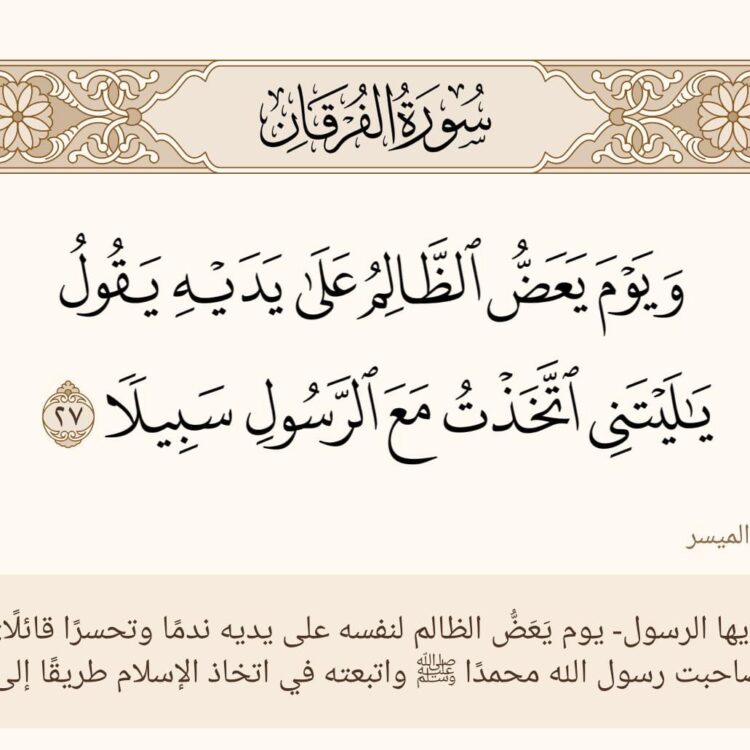 سُورَةُ الفُرْقَانِ
وَيَوْمَ يَعَضُّ ٱلظَّالِمُ عَلَىٰ يَدَيْهِ يَقُولُ
يَٰلَيْتَنِي ٱتَّخَذْتُ مَعَ ٱلرَّسُولِ سَبِيلًا ٢٧
الميسر
يها الرسول- يوم يَعَضُّ الظالم لنفسه على يديه ندمًا وتحسرًا قائلًا
صاحبت رسول الله محمدًا ﷺ واتبعته في اتخاذ الإسلام طريقًا إلى